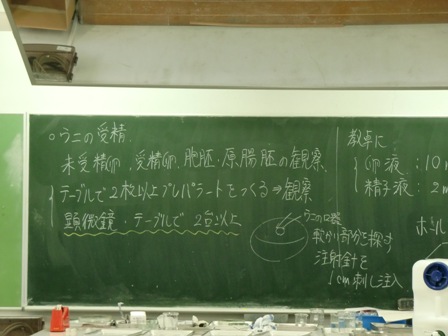 ○ウニの受精
未受精卵、受精卵、胞胚・原腸胚の観察
テーブルで2枚以上プレパラートをつくる⇒観察
顕微鏡・テーブルで 2台以上
ウニの口器
軟かい部分を探す
注射針を
1cm刺し注入
教卓に
卵液:10
精子液:2m
ホール